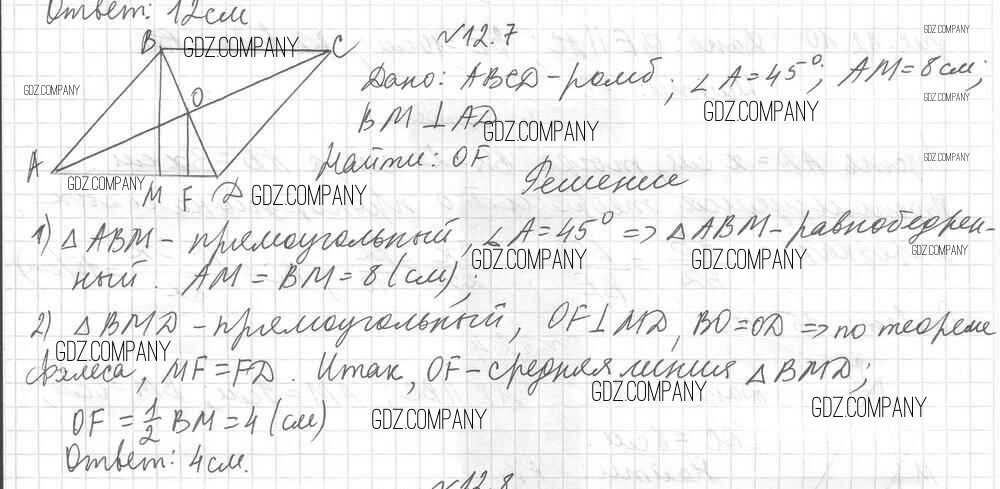 Ответ: 12 см
№12.7
B
C
O
A
M
F
D
Дано: ABCD - ромб; ∠A=45°; AM=8 см;
BM ⊥ AD
Найти: OF
Решение
1) △ ABM - прямоугольный, ∠A=45° => △ ABM - равнобедрен-
ный. AM = BM = 8 (см);
2) △ BMD - прямоугольный, OF ⊥ MD, BO=OD => по теореме
Фалеса, MF = FD. Итак, OF - средняя линия △ BMD;
OF = 1/2 BM = 4 (см)
Ответ: 4 см.
№12.8
GDZ.COMPANY
GDZ.COMPANY
GDZ.COMPANY
GDZ.COMPANY
GDZ.COMPANY
GDZ.COMPANY
GDZ.COMPANY
GDZ.COMPANY
GDZ.COMPANY
GDZ.COMPANY
GDZ.COMPANY
GDZ.COMPANY
GDZ.COMPANY
GDZ.COMPANY
GDZ.COMPANY
GDZ.COMPANY